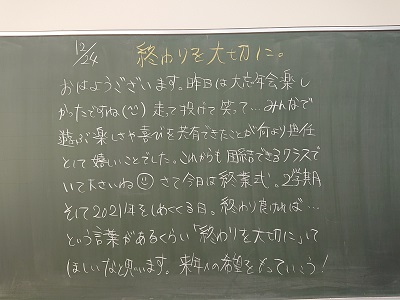 12/24 終わりを大切に。
おはようございます。昨日は大忘年会楽し
かったですね(^^) 走って投げて笑って…みんなで
遊ぶ楽しさや喜びを共有できたことが何より担任
として嬉しいことでした。これからも団結できるクラスで
いて下さいね☺ さて今日は終業式。2学期
そして2021年をしめくくる日。終わり良ければ…
という言葉があるくらい「終わりを大切に」して
ほしいなと思います。来年への希望をもっていこう!